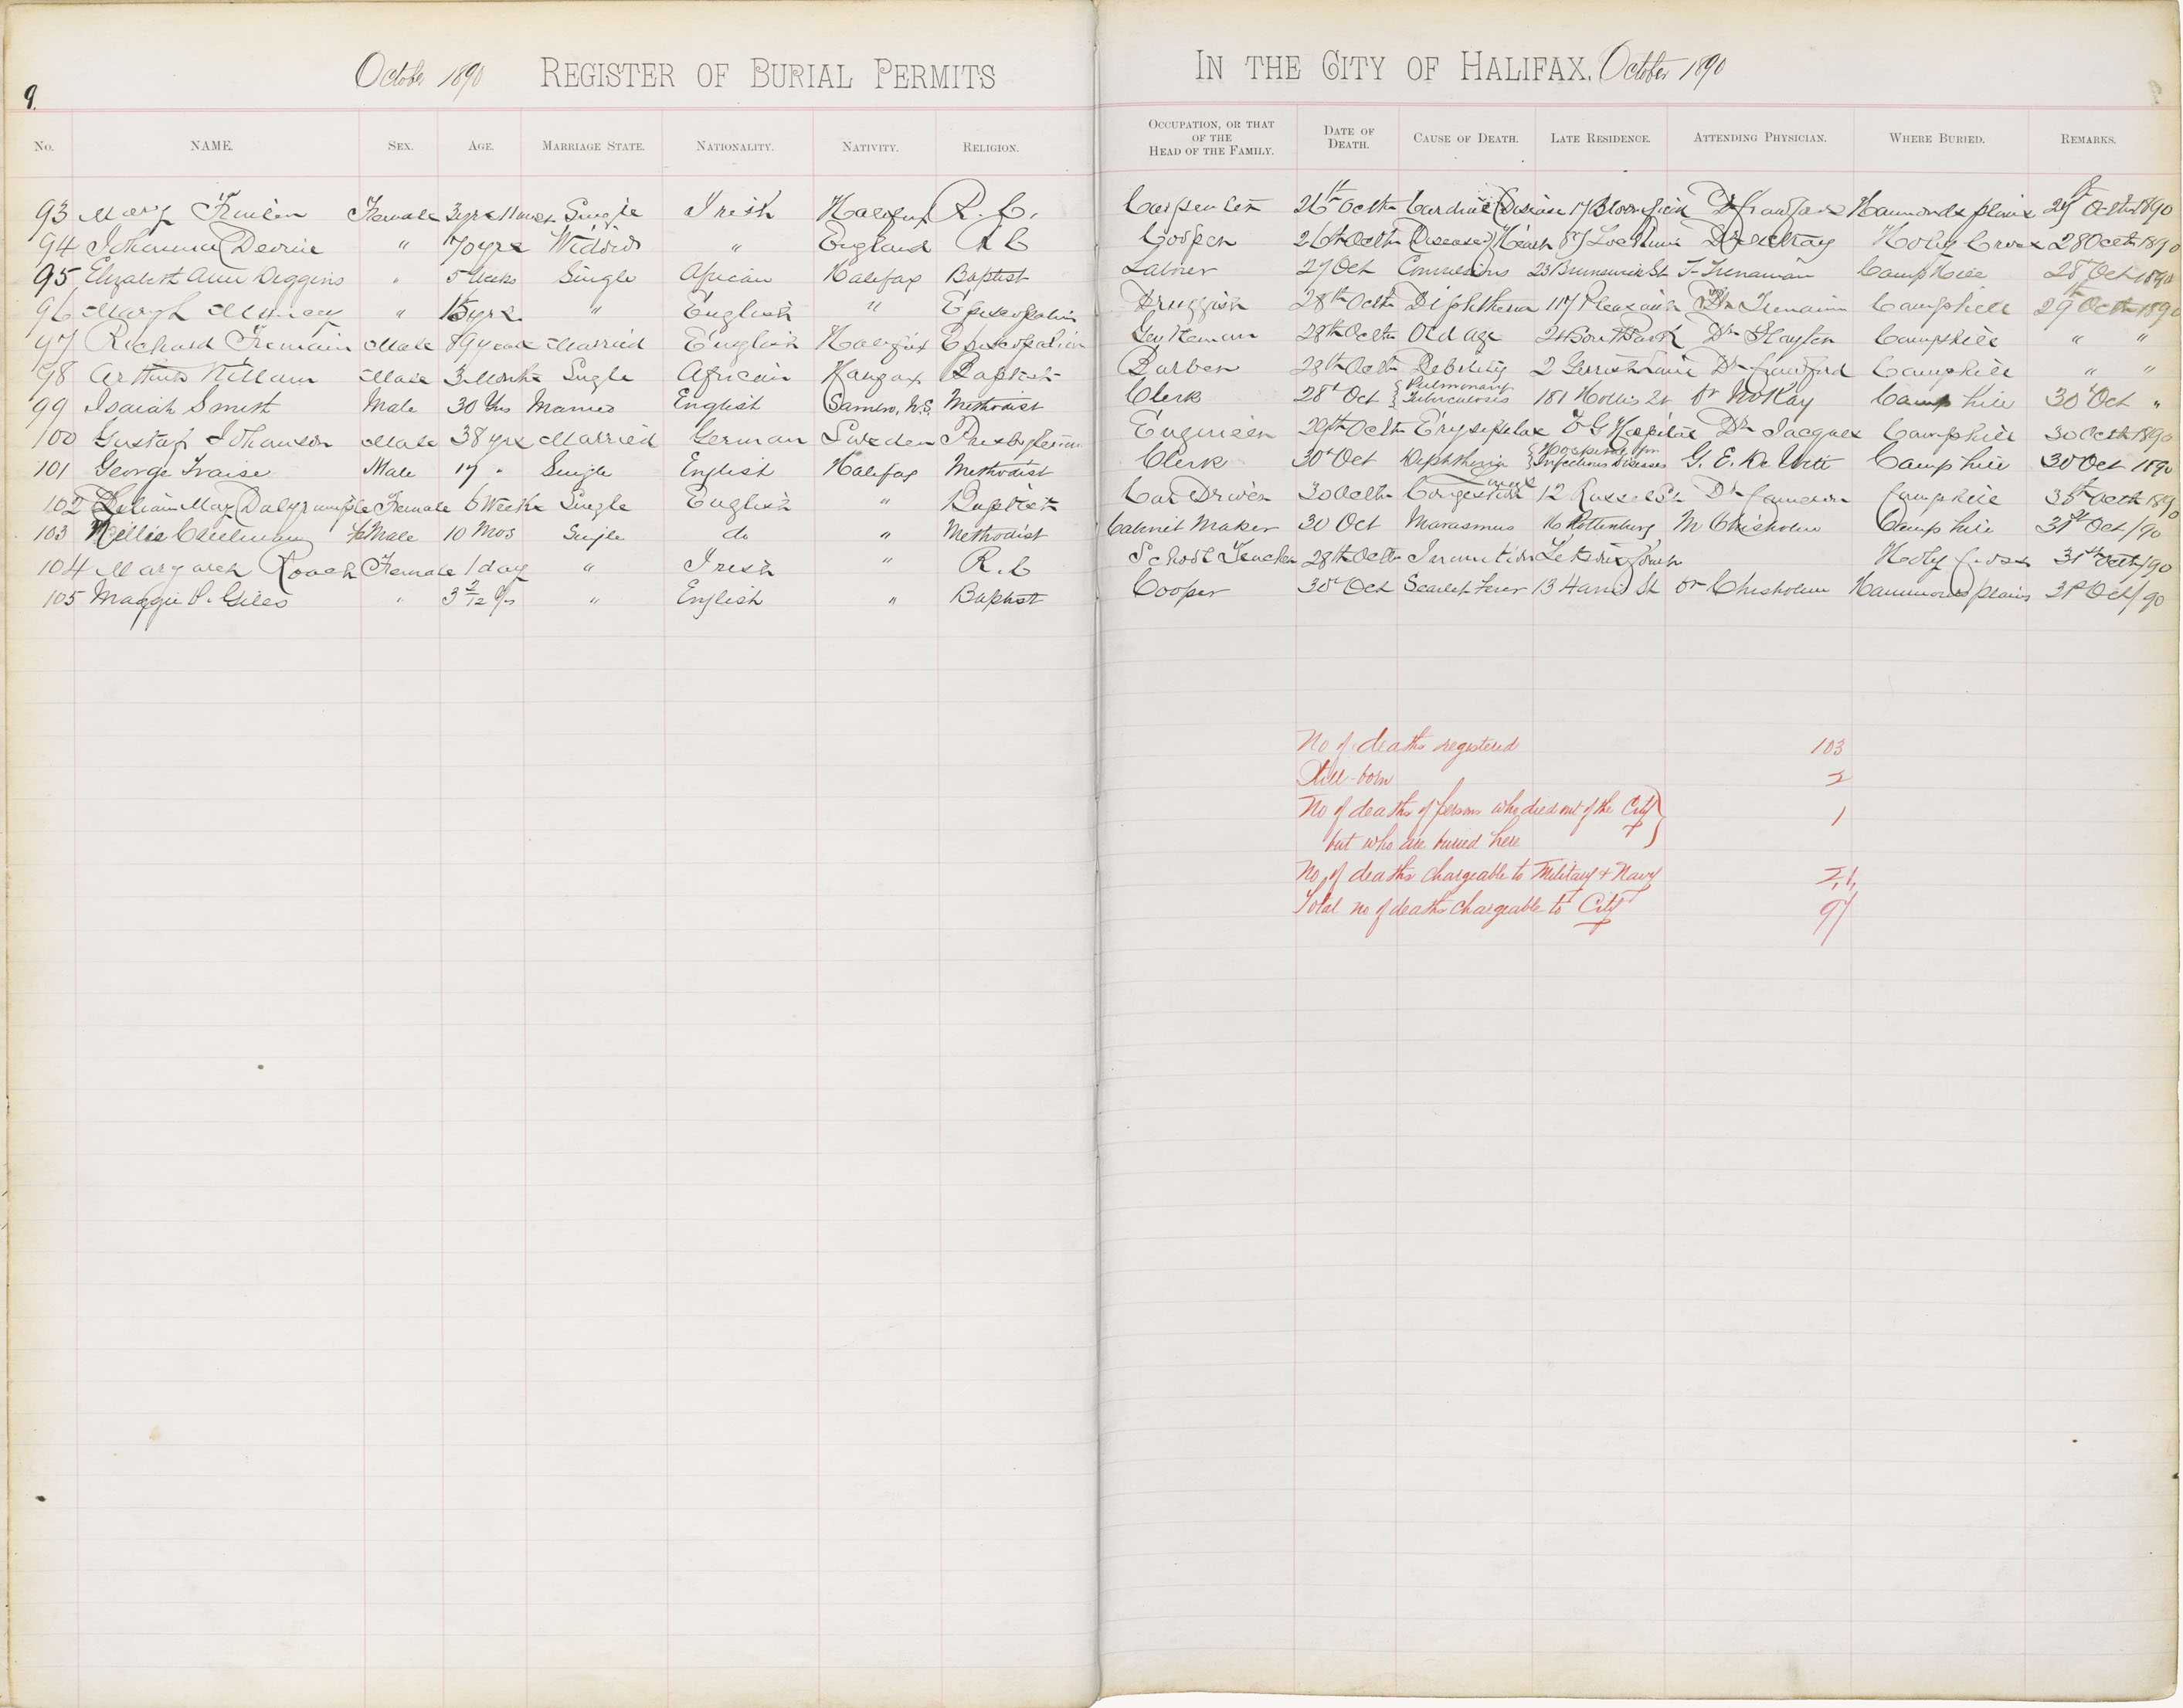 October 1890 REGISTER OF BURIAL PERMITS IN THE CITY OF HALIFAX. October 1890
9.
No. NAME. SEX. AGE. MARRIAGE STATE. NATIONALITY. NATIVITY. RELIGION. OCCUPATION, OR THAT OF THE HEAD OF THE FAMILY. DATE OF DEATH. CAUSE OF DEATH. LATE RESIDENCE. ATTENDING PHYSICIAN. WHERE BURIED. REMARKS.
93 Mary Female 3 yrs 11 mos Single Irish Halifax R.C. Carpenter 26th Octbr Cardiac Disease 17 Bloomfield Dr Crawford Hammonds plains Octbr 1890
94 Johanna Devine " 70 yrs Widow " England R C Cooper 26th Octbr Disease of Heart 87 Dr McKay Holy Cross 28 Octbr 1890
95 Elizabeth Ann Diggins " 5 Weeks Single African Halifax Baptist Laborer 27 Oct Convulsions 23 Brunswick St T. Trenaman Camp Hill 28th Oct 1890
96 " 15 yrs " English " Episcopalian Druggist 28th Octbr Diphtheria 117 Pleasant Dr Tremaine Camphill 29th Octbr 1890
97 Richard Tremain Male 89 years Married English Halifax Episcopalian Gentleman 28th Octbr Old age 24 South Park Dr Slayter Camphill " "
98 Arthur Male 3 Months Single African Halifax Baptist Barber 28th Octbr Debility 2 Gerrish Lane Dr Crawford Camphill " "
99 Isaiah Smith Male 30 Yrs Married English Sambro, N.S. Methodist Clerk 28th Oct Pulmonary Tuberculosis 181 Hollis St Dr McKay Camp hill 30th Oct "
100 Gustaf Johanson Male 38 yrs Married German Sweden Presbyterian Engineer 29th Octbr Erysipelas V G Hospital Dr Jacques Camphill 30 Octbr 1890
101 George Fraise Male 17 " Single English Halifax Methodist Clerk 30th Oct Diphtheria Hospital for Infectious Diseases G. E. DeWitt Camp hill 30 Oct 1890
102 Lilian May Dalyrumple Female 6 Weeks Single English " Baptist Car Driver 30 Octbr Congestion Lungs 12 Russel St Dr Cameron Camphill Octbr 1890
103 Nellie feMale 10 Mos Single do " Methodist Cabinet Maker 30 Oct Marasmus 16 Gottenburg M Chisholm Camp hill 31st Oct/90
104 Margaret Roach Female 1 day " Irish " R.C School Teacher 28th Octbr Inanition Holy Cross 31st Octbr/90
105 Maggie P. Giles " 3 2/12 Yrs " English " Baptist Cooper 30th Oct Scarlet Fever 13 Harris St Dr Chisholm Hammonds plains 31st Oct/90
No of deaths registered 103
Still-born 2
No of deaths of persons who died out of the City 1
but who are buried here
No. of deaths chargeable to Military & Navy
Total no of deaths chargeable to City 97